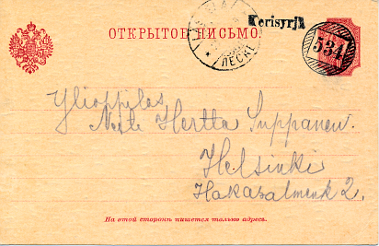 Kerisyrjä
534
ОТКРЫТОЕ ПИСЬМО.
ПЕСКІ
Ylioppilas
Neiti Hertta Suppanen.
Helsinki
Hakasalmenk 2.
На этой сторонѣ пишется только адресъ.